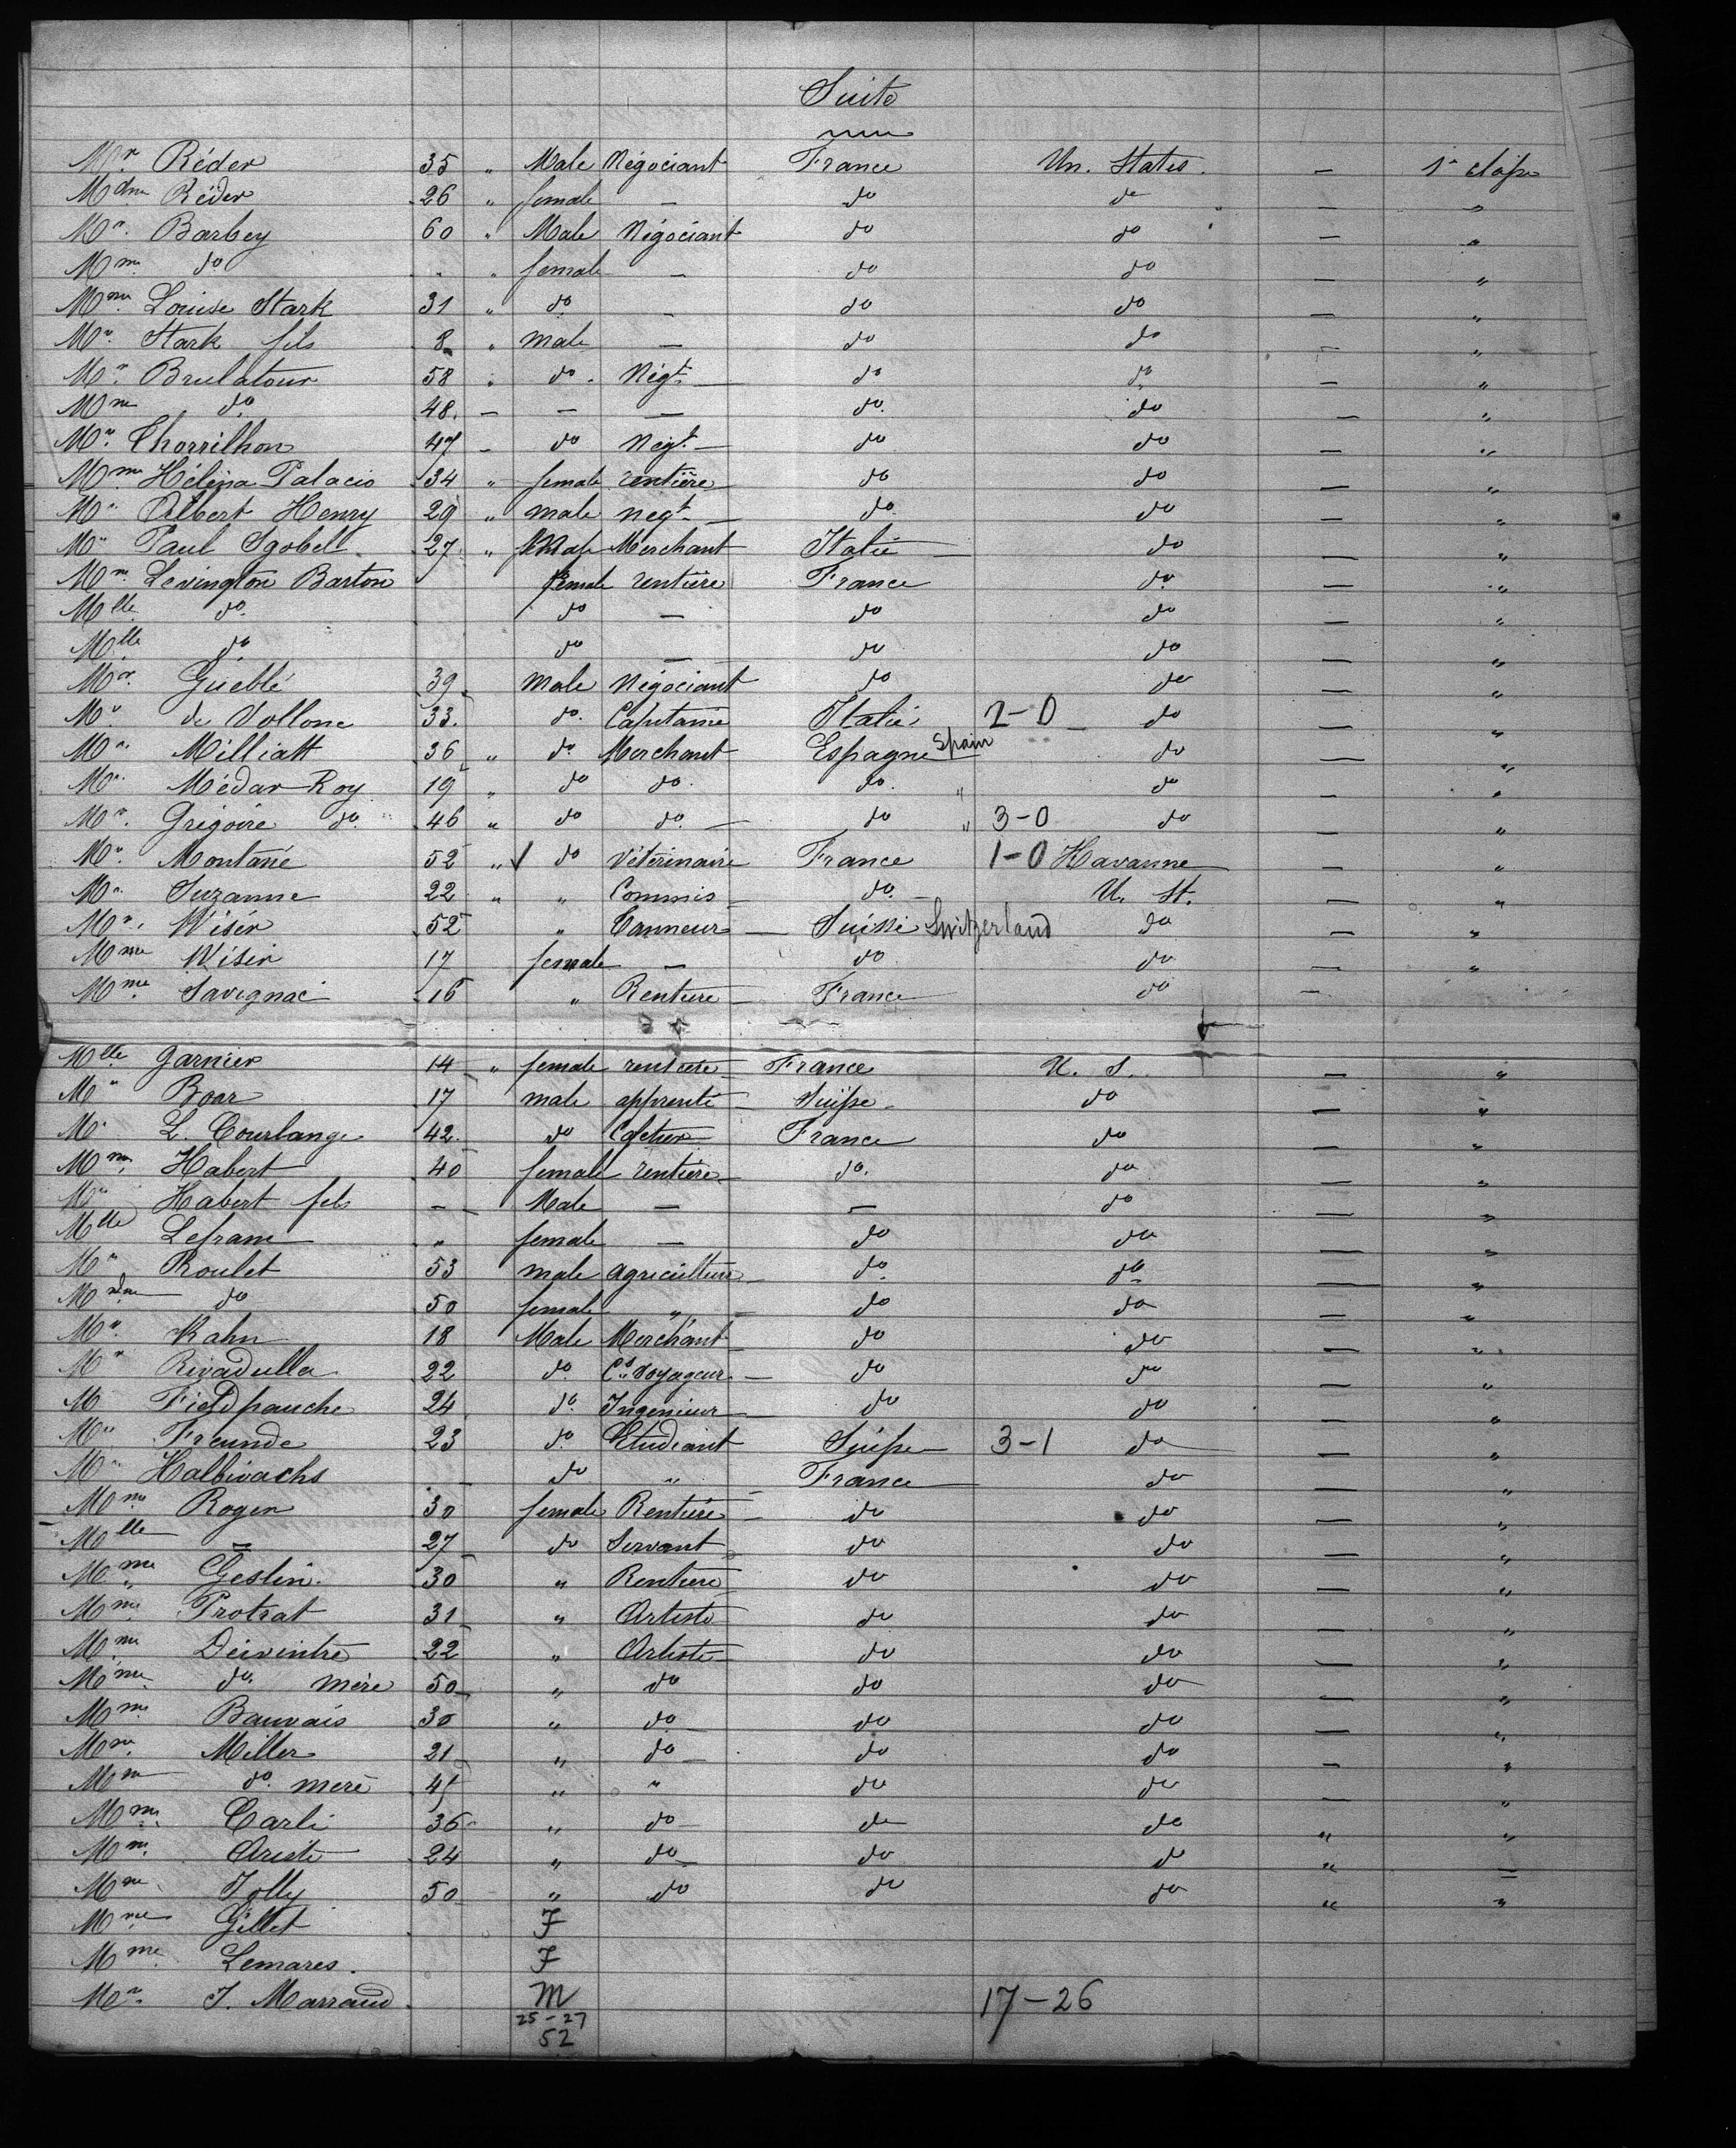 Suite
Mr. Réder 35 " Male Négociant France Un. States. — 1e classe
Mdme Réder 26 " female — do do — "
Mr. Barbey 60 " Male Négociant do do — "
Mme do " " female — do do — "
Mme Louise Stark 31 " do — do do — "
Mr. Stark fils 8 " male — do do — "
Mr. Brulatour 58 " do. Négt. — do do — "
Mme do 48. — — — do. do — "
Mr. Chorrilhon 47 — do Negt. — do do — "
Mme Héléna Palacio 34 " female rentière do do — "
Mr. Albert Henry 29 " male negt. — do. do — "
Mr. Paul Sgobel. 27. " Merchant Italie — do — "
Mme Levington Barton female rentière France do. — "
Mlle do. do — do do — "
Mlle do. do — do do — "
Mr. Guéblé 39. male Négociant do do — "
Mr. de Vollone 33. do. Capitaine Italie 2-0 do — "
Mr. Milliatt 36 " do Merchant Espagne Spain do — "
Mr. Médar Roy 19 " do do. do. " do — "
Mr. Grégoire do. 46 " do do. — do " 3-0 do — "
Mr. Montané 52 " √ do Vétérinaire France 1-0 Havanne — "
Mr. Suzanne 22 " " Commis — do. — U. St. — "
Mr. Wisér 52 " Tanneur — Suisse Switzerland do — "
Mme Wisér 17 female — do do — "
Mme Savignac 16 " Rentière — France do —
Mlle Garnier 14 " female rentière France U. S. — "
Mr Boar 17 male apprenti — Suisse do — "
Mr L. Courlange 42. do Cafetier France do — "
Mme Habert 40 female rentière — do. do — "
Mr Habert fils — — Male — — do — "
Mlle Lefranc " female — do do — "
Mr Roulet 53 male agriculteur — do. do — "
Mdme do 50 female " — do do — "
Mr. Kahn 18 Male Merchant do do — "
Mr Rivadulla 22 do. Cs. voyageur — do do — "
M Fieldpauche 24 do. Ingenieur do do — "
Mr Freunde 23 do. Etudiant Suisse 3-1 do — "
Mr Halbivachs — do " France do — "
Mme Roger 30 female Rentière — do do — "
Mlle = 27 do Servant do do — "
Mme Geslin. 30 " Rentière do do — "
Mme Protrat 31 " Artiste do do — "
Mme 22 " Artiste do do — "
Mme do. mère 50 " do do do — "
Mme Bauvais 30 " do do do — "
Mme Miller 21 " do — do do — "
Mme do. merè " " do do — "
Mme Carli 36 " do do do " "
Mme Ariste 24 " do do do " =
Mme Jolly 50 " do do do " "
Mme Gillet F
Mme Lemares. F
Mr. J. Marraud. M 17-26
25-27
52